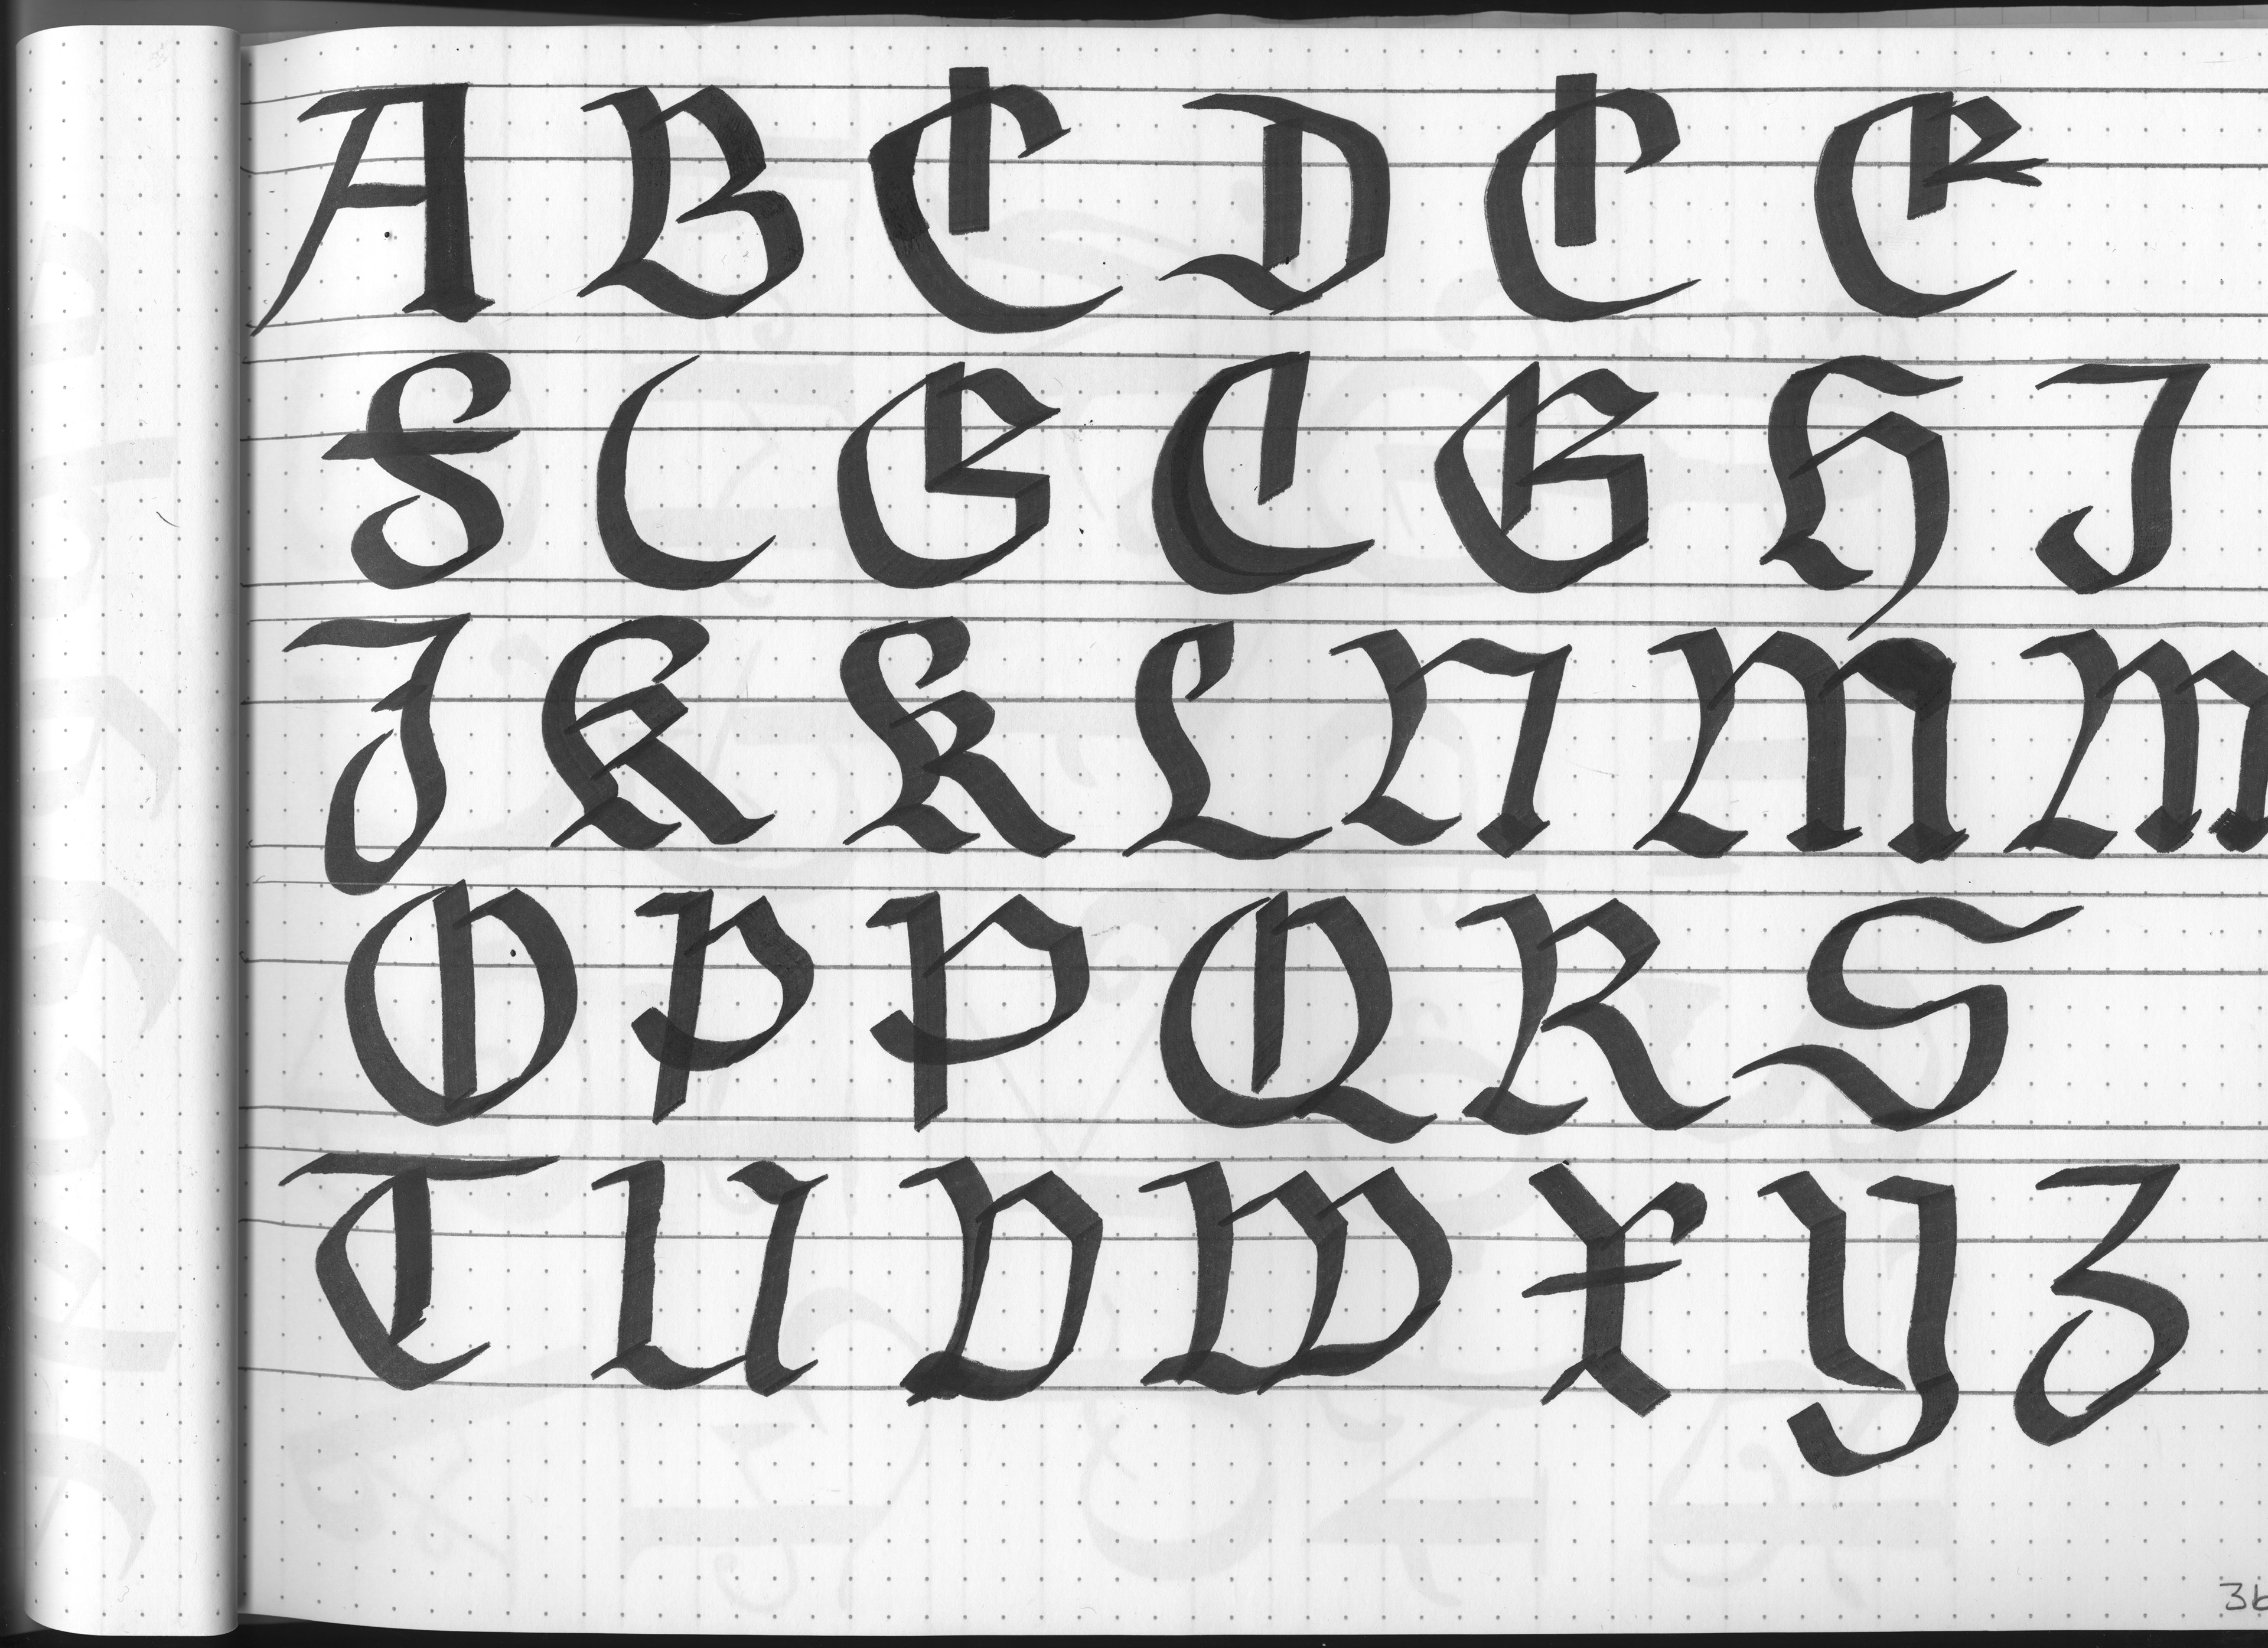 A B C D C E
F C G C G H I
J K K L N M M
O P P Q R S
T U V W X Y Z